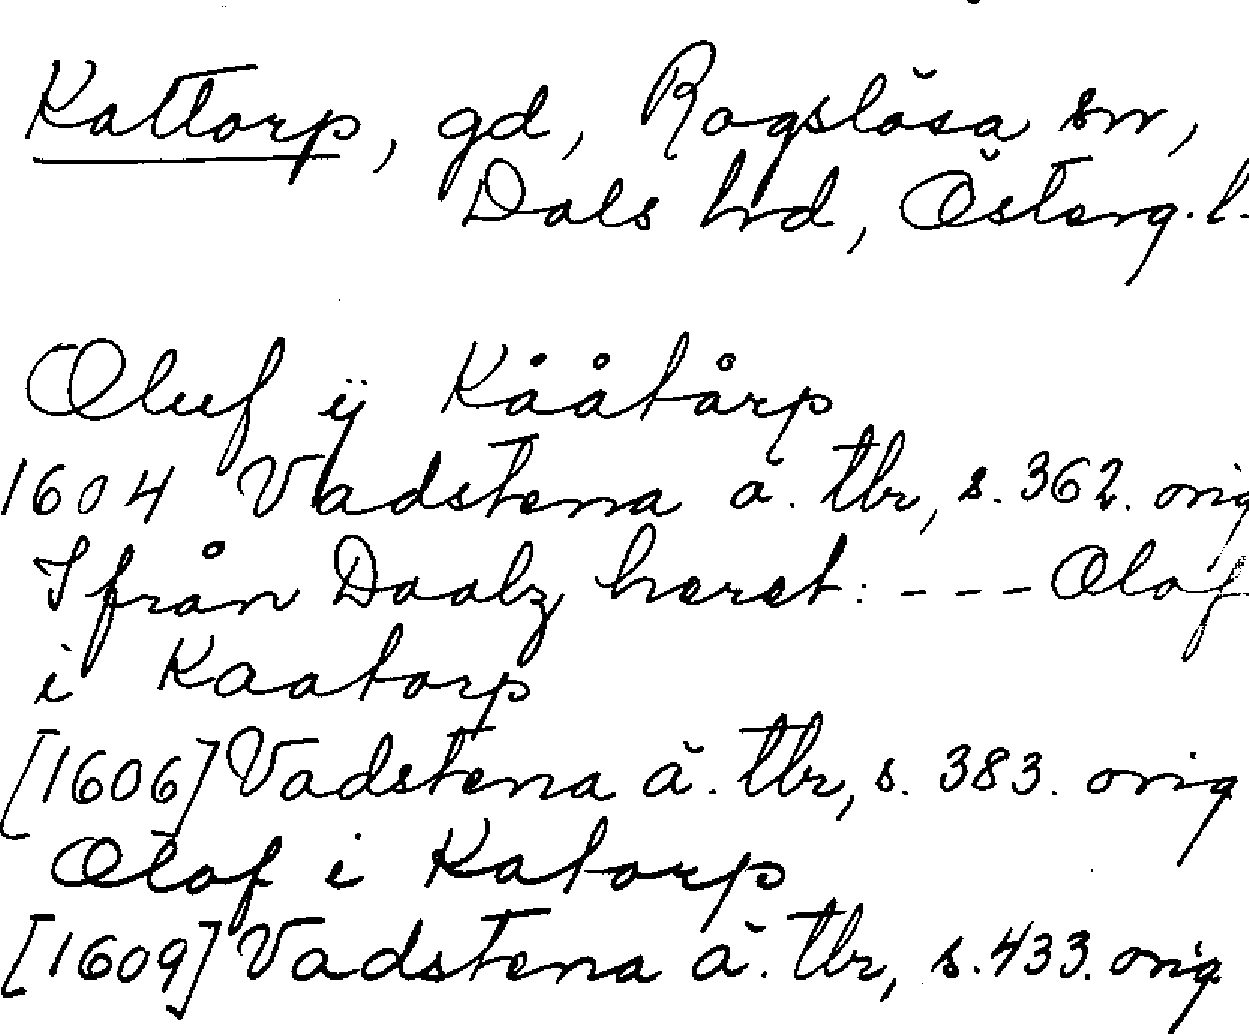 Kattorp, gd, Rogslösa sn,
Dals hd, Österg. l.
Oluf ij Kååtårp
1604 Vadstena ä. tbr, s. 362. orig
Ifrån Daalz heret: --- Olof
i Kaatorp
[1606] Vadstena ä. tbr, s. 383. orig
Olof i Katorp
[1609] Vadstena ä. tbr, s. 433. orig